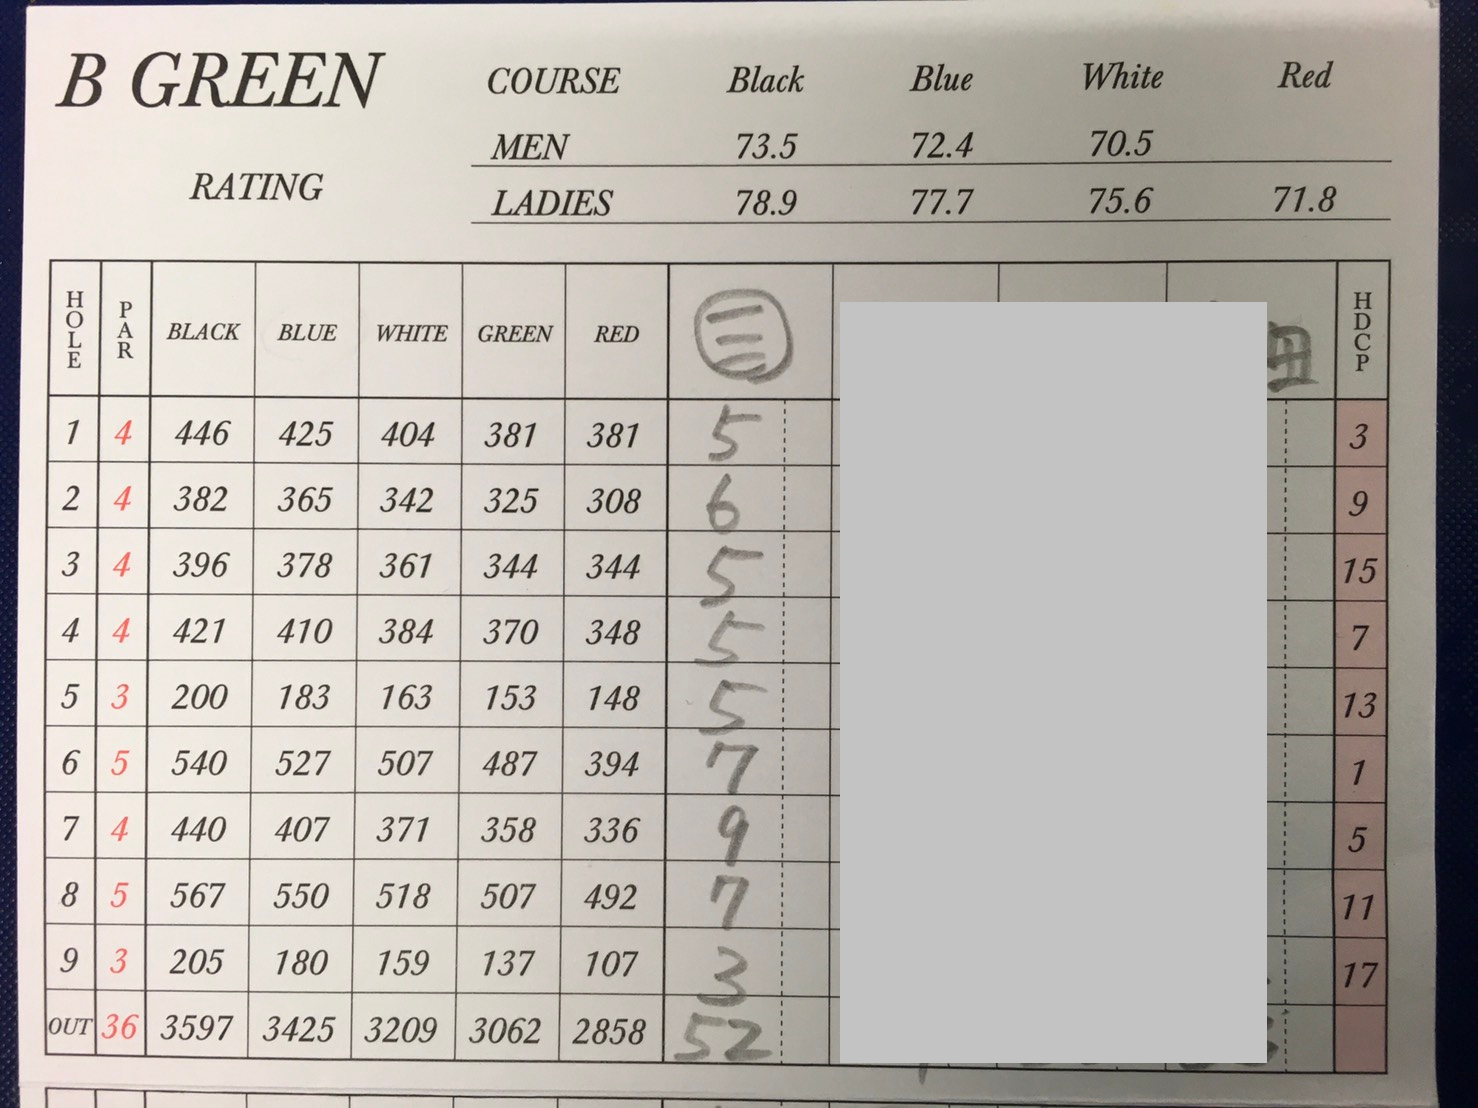 B GREEN
COURSE Black Blue White Red
MEN 73.5 72.4 70.5
RATING
LADIES 78.9 77.7 75.6 71.8
HOLE PAR BLACK BLUE WHITE GREEN RED 三 HDCP
1 4 446 425 404 381 381 5 3
2 4 382 365 342 325 308 6 9
3 4 396 378 361 344 344 5 15
4 4 421 410 384 370 348 5 7
5 3 200 183 163 153 148 5 13
6 5 540 527 507 487 394 7 1
7 4 440 407 371 358 336 9 5
8 5 567 550 518 507 492 7 11
9 3 205 180 159 137 107 3 17
OUT 36 3597 3425 3209 3062 2858 52